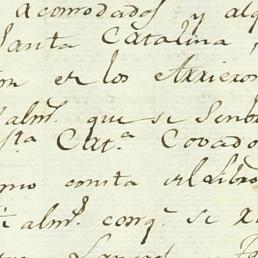 acomodados y alq
Santa Catalina,
on en los Arrieros
alm.s que se Senb
sta Cat.a Covado
mo consta el Libro
alm.s conq.e se